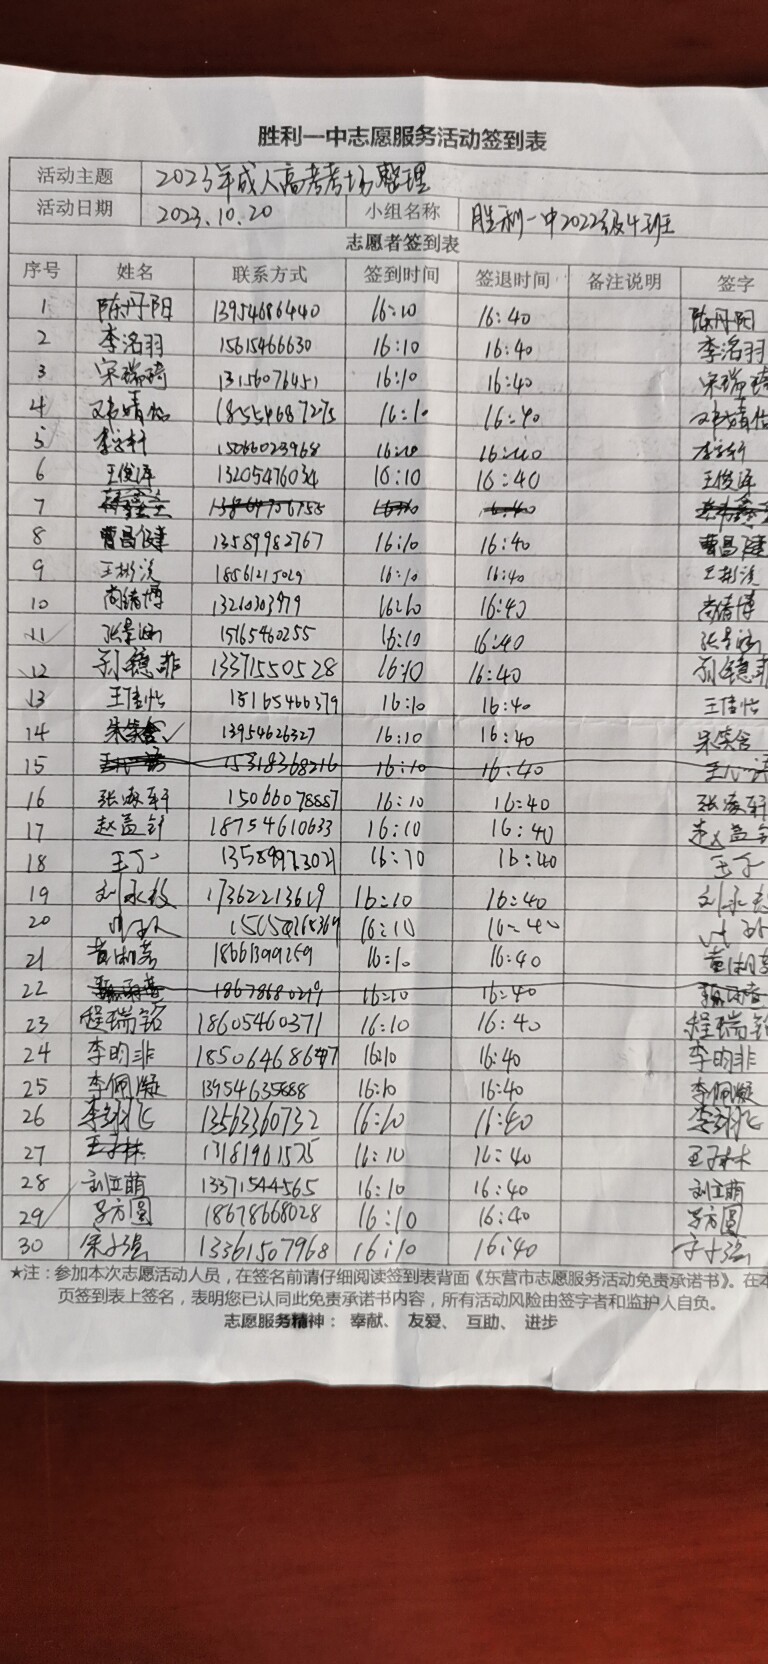 胜利一中志愿服务活动签到表
活动主题 2023年成人高考考场整理
活动日期 2023.10.20 小组名称 胜利一中2022级4班
志愿者签到表
序号 姓名 联系方式 签到时间 签退时间 备注说明 签字
1 陈丹阳 13954686440 16:10 16:40 陈丹阳
2 李洺羽 15615466630 16:10 16:40 李洺羽
3 宋瑞琦 13156076451 16:10 16:40 宋瑞琦
4 18554687275 16:10 16:40
5 李子轩 15066023968 16:10 16:40 李子轩
6 王俊泽 13205476034 16:10 16:40 王俊泽
7 16:10 16:40
8 曹昌健 13589982767 16:10 16:40 曹昌健
9 18561215029 16:10 16:40
10 尚绪博 13210303979 16:10 16:40 尚绪博
11 张景涵 15165460255 16:10 16:40 张景涵
12 孙德菲 13371550528 16:10 16:40 孙德菲
13 王佳怡 15165466379 16:10 16:40 王佳怡
14 13954626327 16:10 16:40
15 15318368216 16:10 16:40
16 张凌轩 15066078887 16:10 16:40 张凌轩
17 赵孟钊 18754610633 16:10 16:40
18 16:10 16:40
19 17362213619 16:10 16:40
20 16:10 16:40
21 18661399259 16:10 16:40
22 18678680219 16:10 16:40
23 程瑞铭 18605460371 16:10 16:40 程瑞铭
24 李昀非 16:10 16:40 李昀非
25 李佩凝 13954635888 16:10 16:40 李佩凝
26 13563360732 16:10 16:40
27 王子林 13181961575 16:10 16:40 王子林
28 刘立萌 13371544565 16:10 16:40 刘立萌
29 18678668028 16:10 16:40
30 宋子强 13361507968 16:10 16:40
★注：参加本次志愿活动人员，在签名前请仔细阅读签到表背面《东营市志愿服务活动免责承诺书》。在本
页签到表上签名，表明您已认同此免责承诺书内容，所有活动风险由签字者和监护人自负。
志愿服务精神： 奉献、 友爱、 互助、 进步